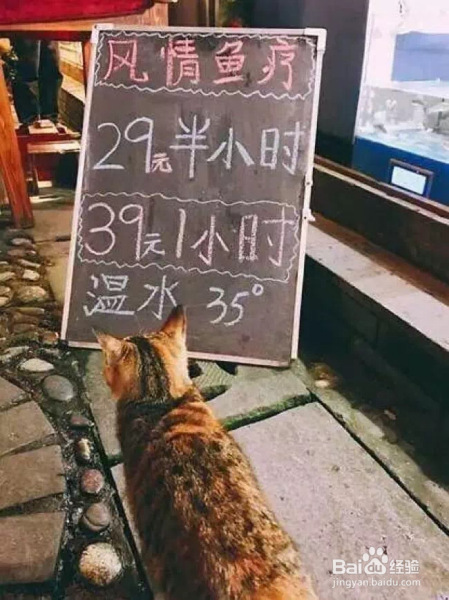 风情鱼疗
29元半小时
39元1小时
温水 35°
Bai du 经验
jingyan.baidu.com